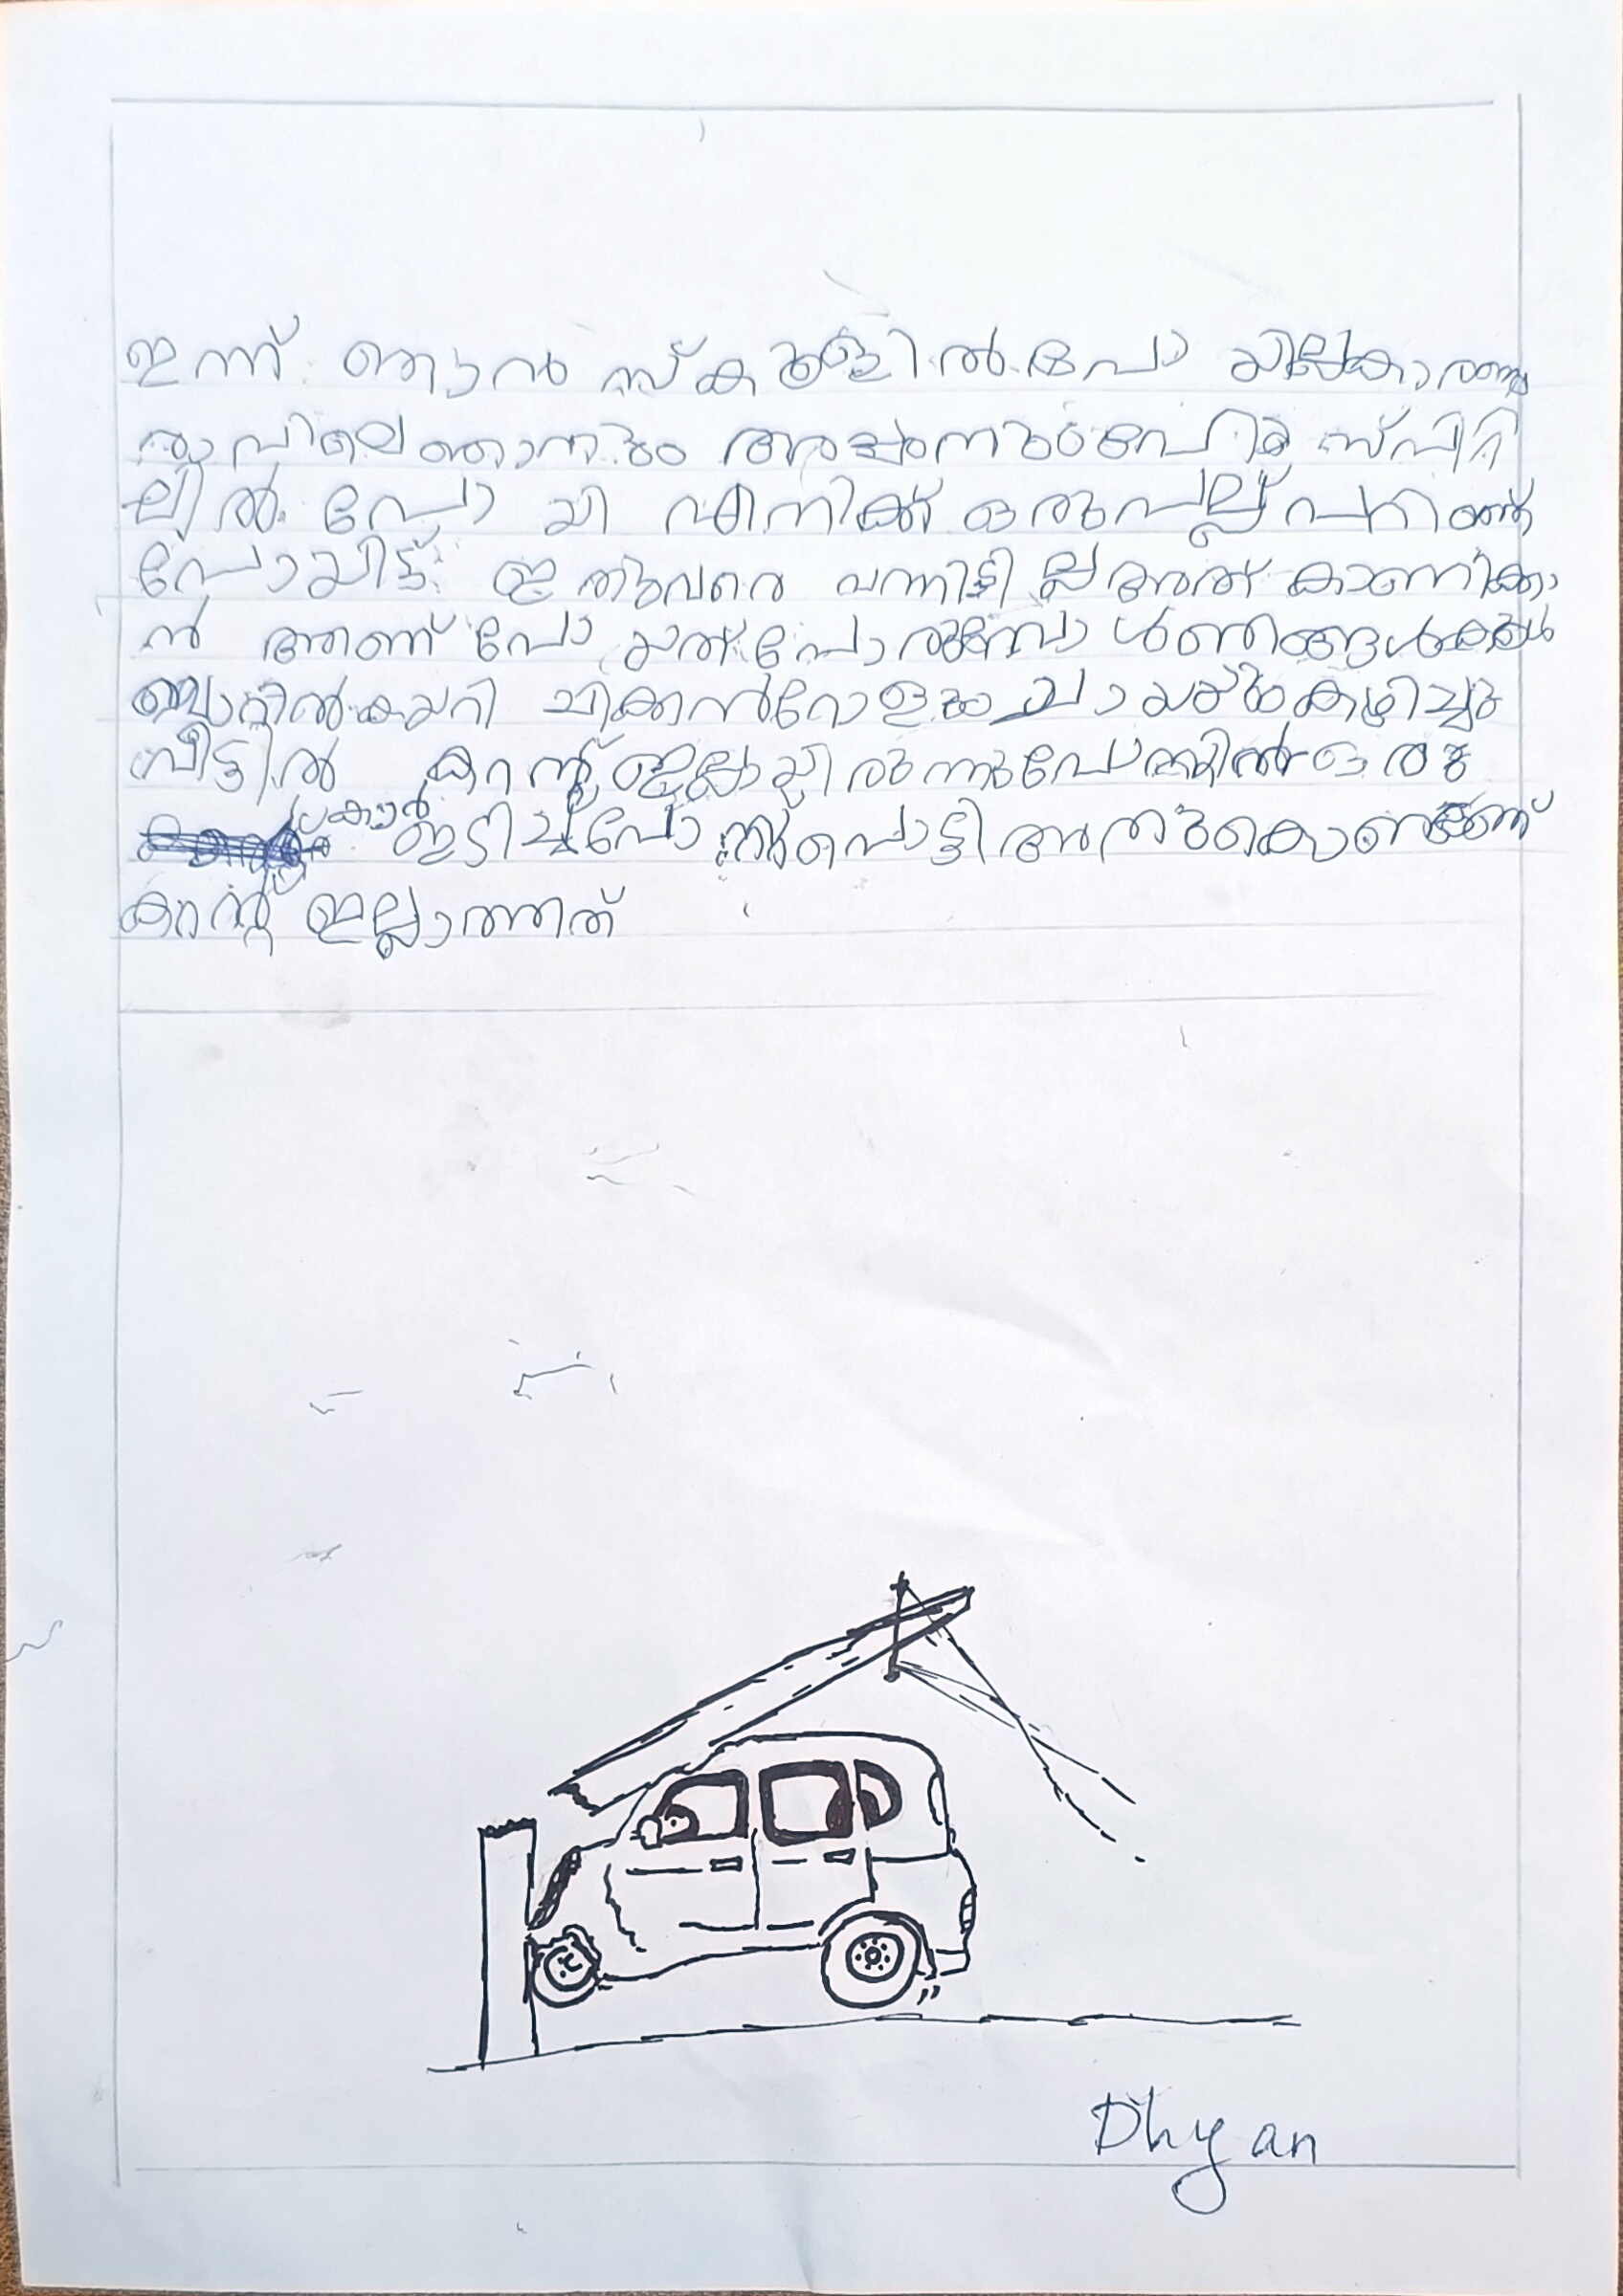 ഇന്ന് ഞാൻ സ്കൂളിൽ പോ യില്ല കാരണം
രാവിലെ ഞാനും അച്ഛനും ഹോസ്പിറ്റ
ലിൽ പോ യി എനിക്ക് ഒരു പല്ല് പറിഞ്ഞ്
പോയിട്ട് ഇതുവരെ വന്നിട്ടില്ല അത് കാണിക്കാ
ൻ ആണ് പോ യത് പോരുമ്പോ ൾ ഞങ്ങൾ
കയറി ചിക്കൻറോളും ചായയും കഴിച്ചു
വീട്ടിൽ കറന്റ് ഇല്ലായിരുന്നു ഒരു
കാർ ഇടിച്ച് പോസ്റ്റ് പൊട്ടി അതുകൊണ്ടാണ്
കറന്റ് ഇല്ലാത്തത്
Dhyan